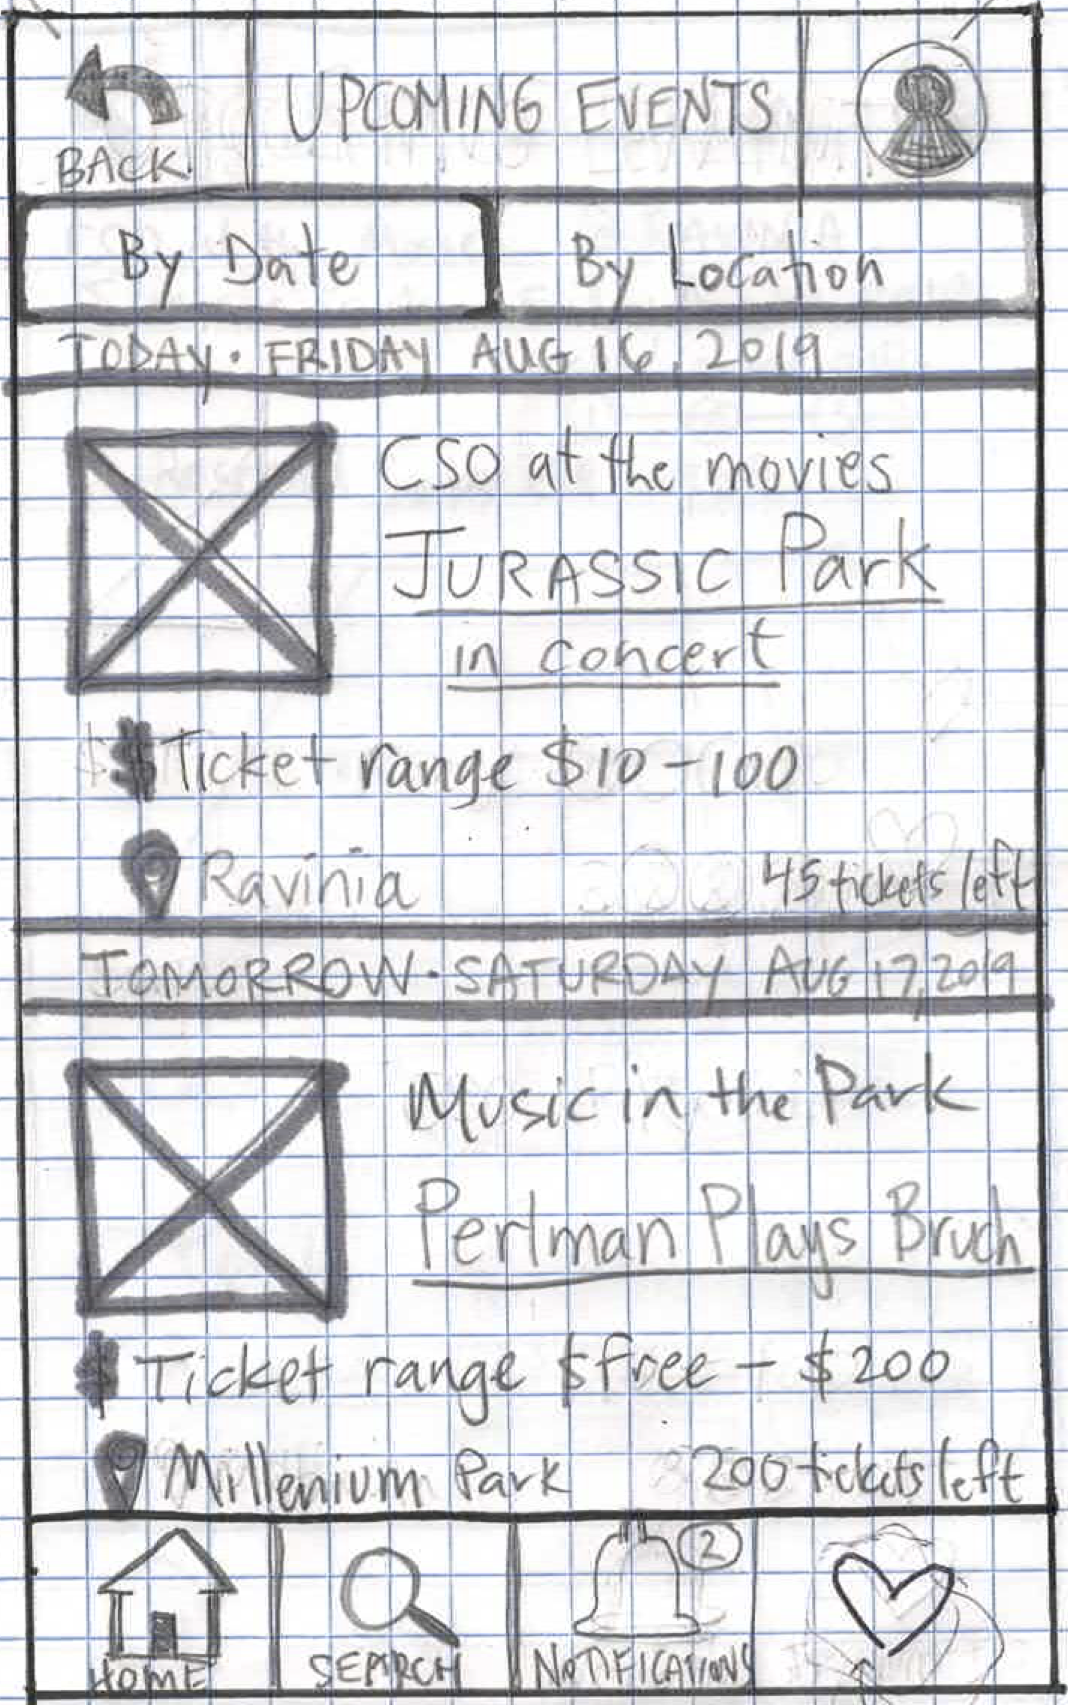 UPCOMING EVENTS
BACK
By Date
By Location
TODAY · FRIDAY AUG 16, 2019
CSO at the movies
JURASSIC Park
in concert
$ Ticket range $10-100
Ravinia
45 tickets left
TOMORROW · SATURDAY AUG 17, 2019
Music in the Park
Perlman Plays Bruch
$ Ticket range $free - $200
Millenium Park
200 tickets left
2
HOME
SEARCH
NOTIFICATIONS